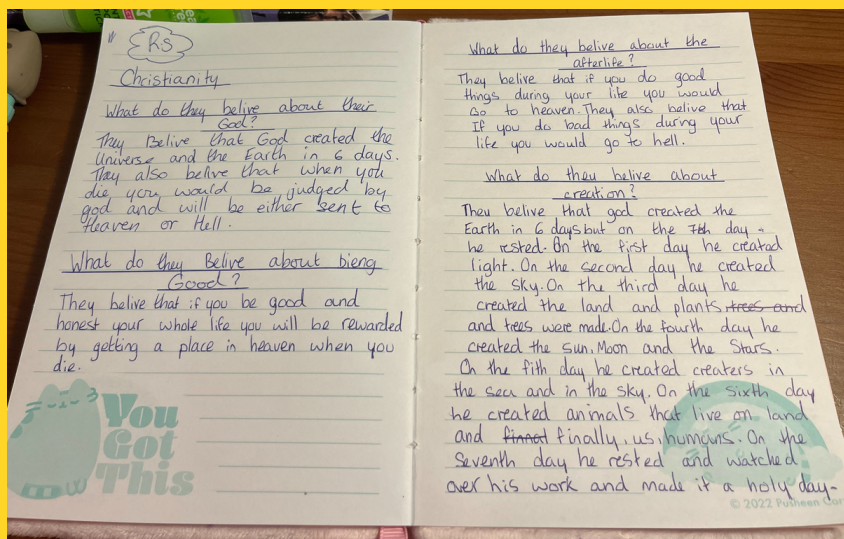 RS
Christianity
What do they belive about their
God?
They Belive that God created the
Universe and the Earth in 6 days.
They also belive that when you
die, you would be judged by
god and will be either sent to
Heaven or Hell.
What do they Belive about bieng
Good?
They belive that if you be good and
honest your whole life you will be rewarded
by getting a place in heaven when you
die.
You
Got
This
What do they belive about the
afterlife?
They belive that if you do good
things during your life you would
Go to heaven. They also belive that
If you do bad things during your
life you would go to hell.
What do they belive about
creation?
They belive that god created the
Earth in 6 days but on the 7th day
he rested. On the first day he created
light. On the second day he created
the sky. On the third day he
created the land and plants, trees and
and trees were made. On the fourth day he
created the sun, Moon and the Stars.
On the fith day he created creaters in
the sea and in the sky. On the sixth day
he created animals that live on land
and finnal finally, us, humans. On the
Seventh day he rested and watched
over his work and made it a holy day.
© 2022 Pusheen Cor